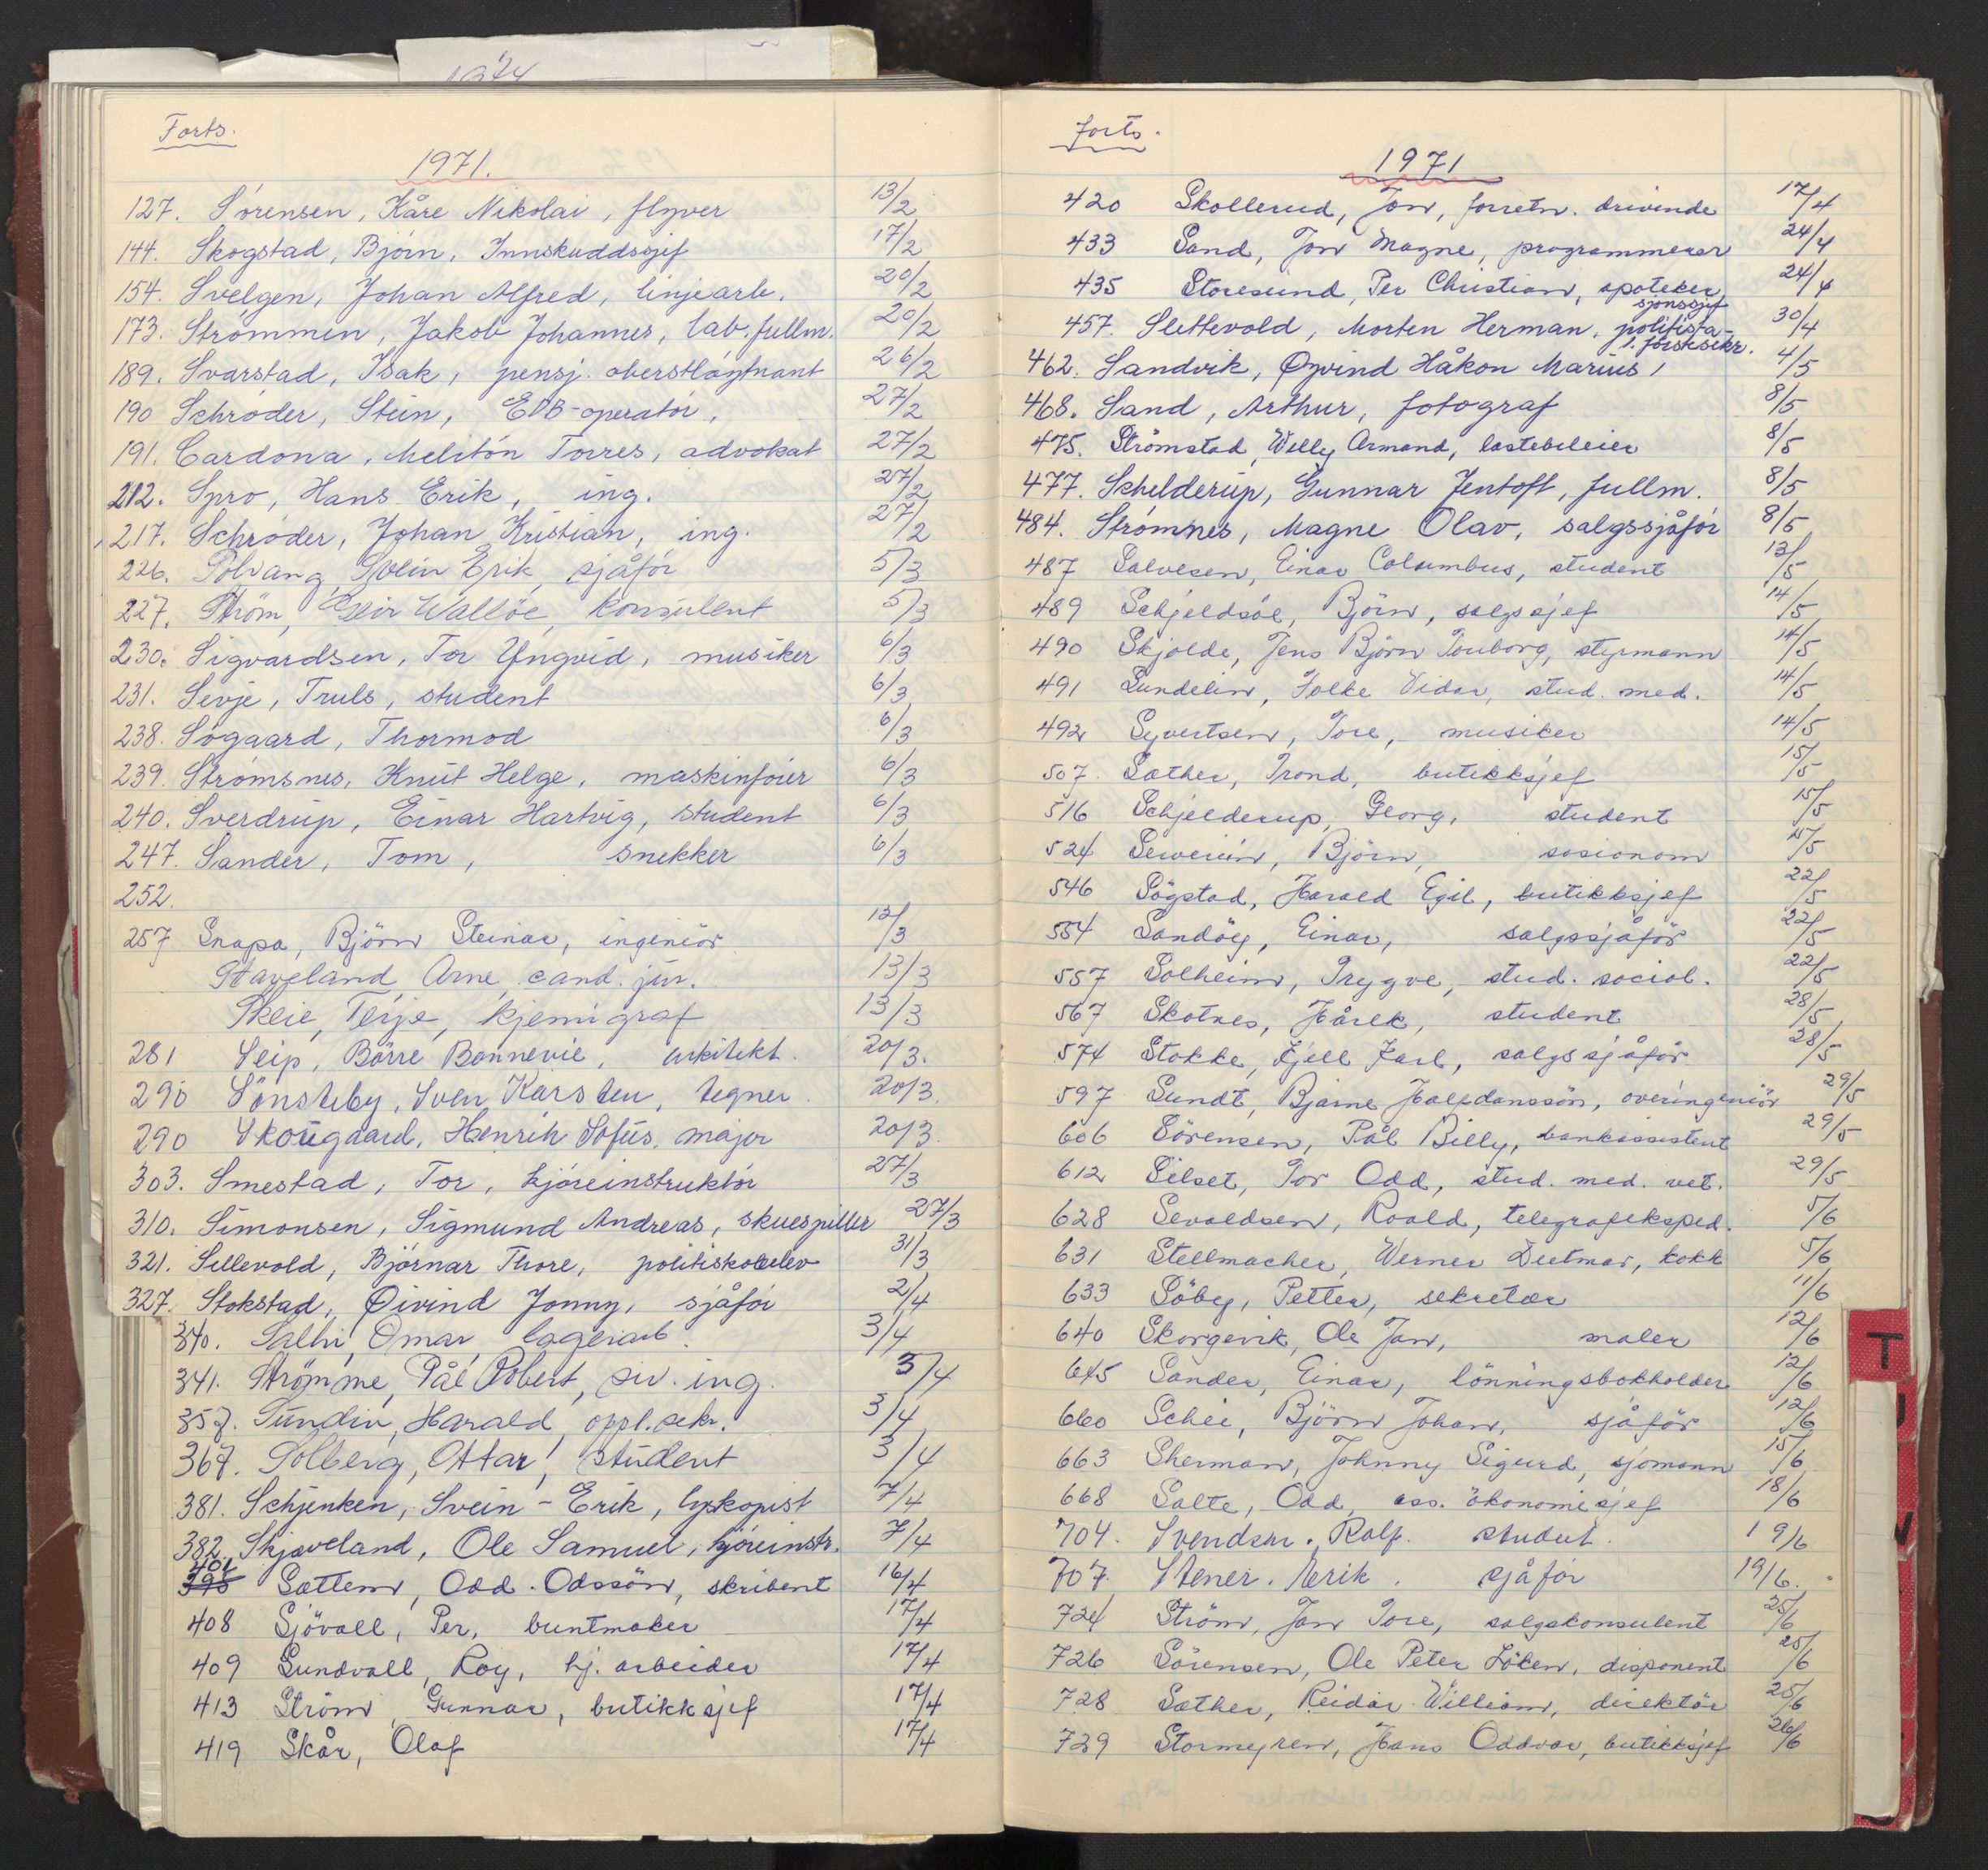 Forts.
1971.
127. Sörensen, Kåre Nikolai, flyver 13/2
144. Skogstad, Björn, Innskuddssjef 17/2
154. Svelgen, Johan Alfred, linjearb. 20/2
173. Strömmen, Jakob Johannes, lab.fullm. 20/2
189. Svarstad, Isak, pensj. oberstløytnant 26/2
190 Schröder, Stein, EDB-operatör, 27/2
191. Cardona, Melitón Torres, advokat 27/2
212. Spro, Hans Erik, ing. 27/2
217. Schröder, Johan Kristian, ing. 27/2
226. Solvang, Svein Erik, sjåför 5/3
227. Ström, Geir Wallöe, konsulent 5/3
230. Sigvardsen, Tor Yngvid, musiker 6/3
231. Sevje, Truls, student 6/3
238. Sögaard, Thormod 6/3
239. Strömsnes, Knut Helge, maskinförer 6/3
240. Sverdrup, Einar Hartvig, student 6/3
247. Sander, Tom, snekker 6/3
252.
257 Snapa, Björn Steinar, ingeniör 12/3
Staveland, Arne, cand. jur. 13/3
Skeie, Terje, kjemigraf 13/3
281 Seip, Börre Bonnevie, arkitekt. 20/3.
290 Sönsteby, Sven Karsten, tegner. 20/3.
290 Skougaard, Henrik Sofus, major 20/3.
303. Smestad, Tor, kjöreinstruktör 27/3
310. Simonsen, Sigmund Andreas, skuespiller 27/3
321. Sillevold, Björnar Thore, politiskoleelev 31/3
327. Stokstad, Øivind Jonny, sjåför 2/4
340. Salhi, Omar, lagerarb. 3/4
341. Strömme, Pål Robert, siv. ing. 3/4
357. Sundin, Harald, oppl.sekr. 3/4
367. Solberg, Ottar, student 3/4
381. Schjenken, Svein-Erik, lyskopist 7/4
382. Skjaveland, Ole Samuel, kjöreinstr. 7/4
401
398 Sættem, Odd Odssön, skribent 16/4
408 Sjövall, Per, buntmaker 17/4
409 Sundvall, Roy, hj. arbeider 17/4
413 Ström, Gunnar, butikksjef 17/4
419 Skår, Olaf 17/4
Forts.
1971
420 Skollerud, Jon, forretn. drivende 17/4
433 Sand, Jon Magne, programmerer 24/4
435 Storesund, Per Christian, apoteker 24/4
457. Slettevold, Morten Herman, politista-sjonssjef 30/4
462. Sandvik, Øyvind Håkon Marius, 1. förstesekr. 4/5
468. Sand, Arthur, fotograf 8/5
475. Strömstad, Willy Armand, lastebileier 8/5
477. Schelderup, Gunnar Jentoft, fullm. 8/5
484. Strömnes, Magne Olav, salgssjåför 8/5
487 Salvesen, Einar Columbus, student 13/5
489 Schjeldsöe, Björn, salgssjef 14/5
490 Skjolde, Jens Björn Touborg, styrmann 14/5
491 Sundelin, Folke Vidar, stud. med. 14/5
492 Syvertsen, Tore, musiker 14/5
507. Sæther, Trond, butikksjef 15/5
516 Schjelderup, Georg, student 15/5
524 Severin, Björn, sosionom 15/5
546 Sögstad, Harald Egil, butikksjef 22/5
554 Sandöy, Einar, salgssjåför 22/5
557 Solheim, Trygve, stud. sociol. 22/5
567 Skotnes, Hårek, student 28/5
574 Stokke, Kjell Karl, salgssjåför 28/5
597 Sundt, Bjarne Halfdanssön, overingeniör 29/5
606 Sörensen, Pål Billy, bankassistent 29/5
612 Silset, Tor Odd, stud. med. vet. 29/5
628 Sevaldsen, Roald, telegrafeksped. 5/6
631 Stellmacher, Werner Dietmar, kokk 5/6
633 Söby, Petter, sekretær 11/6
640 Skorgevik, Ole Jan, maler 12/6
645 Sander, Einar, lönningsbokholder 12/6
660 Schei, Björn Johan, sjåför 12/6
663 Sherman, Johnny Sigurd, sjömann 15/6
668 Salte, Odd, ass. ökonomisjef 18/6
704. Svendsen, Rolf. student. 19/6
707. Stener, Erik. sjåför 19/6.
724 Ström, Jan Tore, salgskonsulent 25/6
726 Sörensen, Ole Peter Löken, disponent 25/6
728 Sæther, Reidar William, direktör 25/6
729 Stormyren, Hans Oddvar, butikksjef 26/6
T